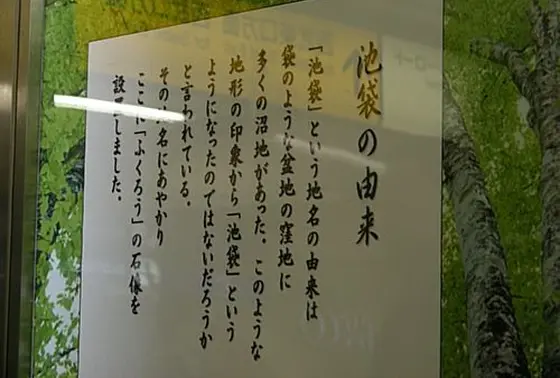 池袋の由来
「池袋」という地名の由来は
袋のような盆地の窪地に
多くの沼地があった。このような
地形の印象から「池袋」という
ようになったのではないだろうか
と言われている。
その地名にあやかり
ここに「ふくろう」の石像を
設置しました。